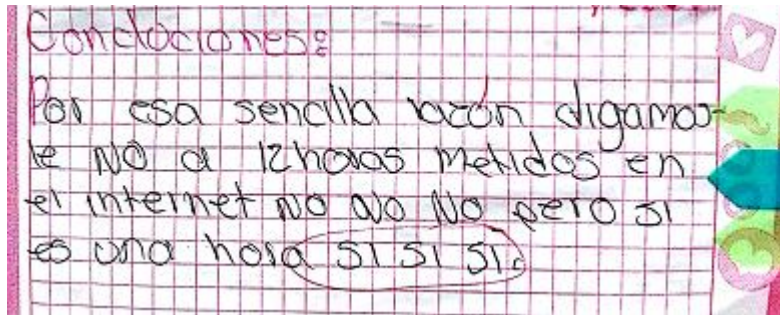 Concluciones:
Por esa sencilla razón digamos-
le NO a 12 horas metidos en
el internet NO NO NO pero si
es una hora SI SI SI.